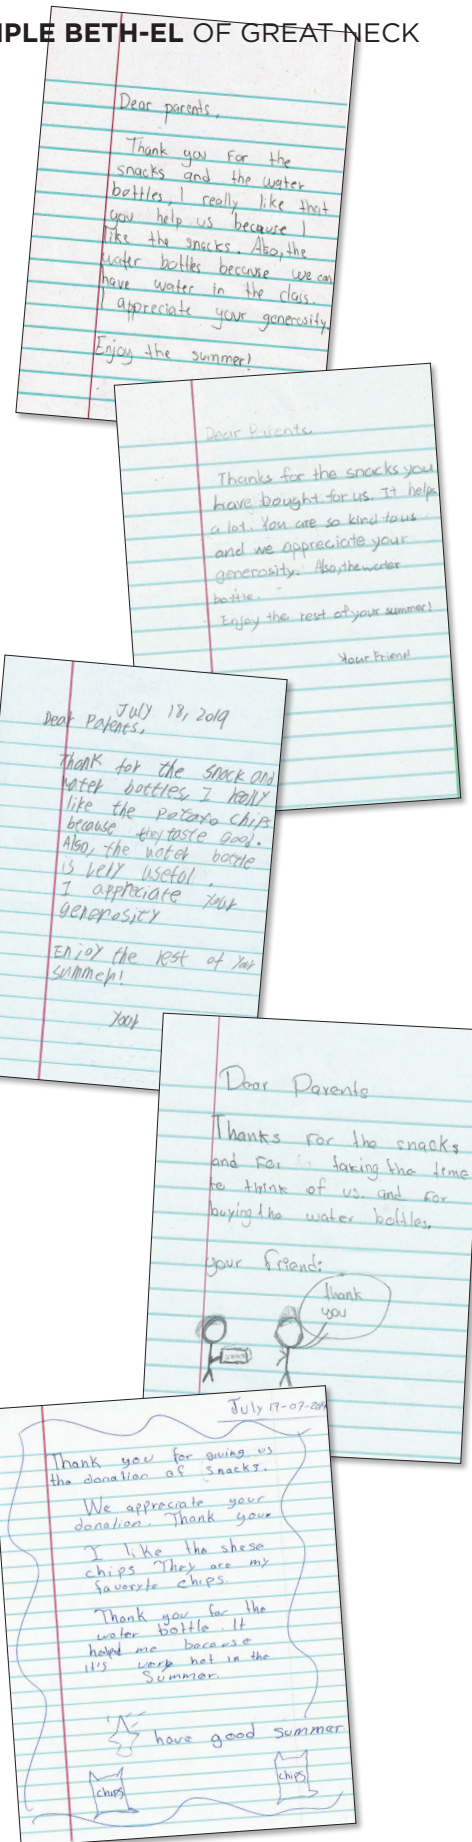 MPLE BETH-EL OF GREAT NECK
Dear parents,
Thank you for the
snacks and the water
bottles, I really like that
you help us because I
like the snacks. Also, the
water bottles because we can
have water in the class.
I appreciate your generosity.
Enjoy the summer!
Dear Parents
Thanks for the snacks you
have bought for us. It helps
a lot. You are so kind to us
and we appreciate your
generosity. Also, the water
bottle.
Enjoy the rest of your summer!
Your Friend
July 18, 2019
Dear Parents,
Thank for the snack and
water bottles, I really
like the potato chips
because they taste good.
Also, the water bottle
is very useful.
I appreciate your
generosity
Enjoy the rest of your
summer!
Your
Dear Parents
Thanks for the snacks
and For taking the time
to think of us. and for
buying the water bottles.
your friend:
thank
you
July 17-07-2019
Thank you for giving us
the donation of snacks.
We appreciate your
donation. Thank your
I like the shese
chips They are my
favoryte chips.
Thank you for the
water bottle. It
helped me because
it's very hot in the
Summer.
have good summer
chips
chips